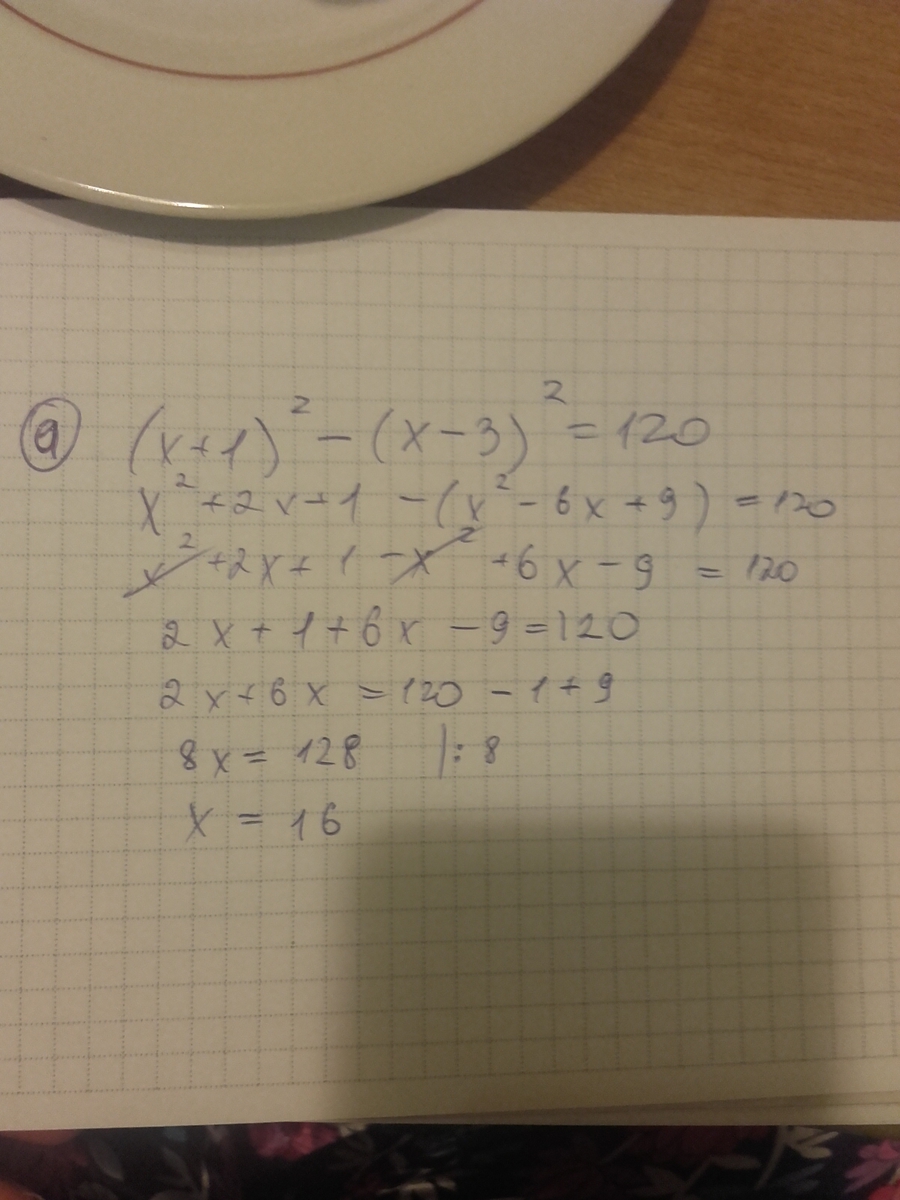 a (x+1)² - (x-3)² = 120
x² +2x+1 -(x² - 6x +9) = 120
x² +2x+1 -x² +6x -9 = 120
2x+1+6x -9=120
2x+6x = 120 -1+9
8x= 128 |:8
x = 16